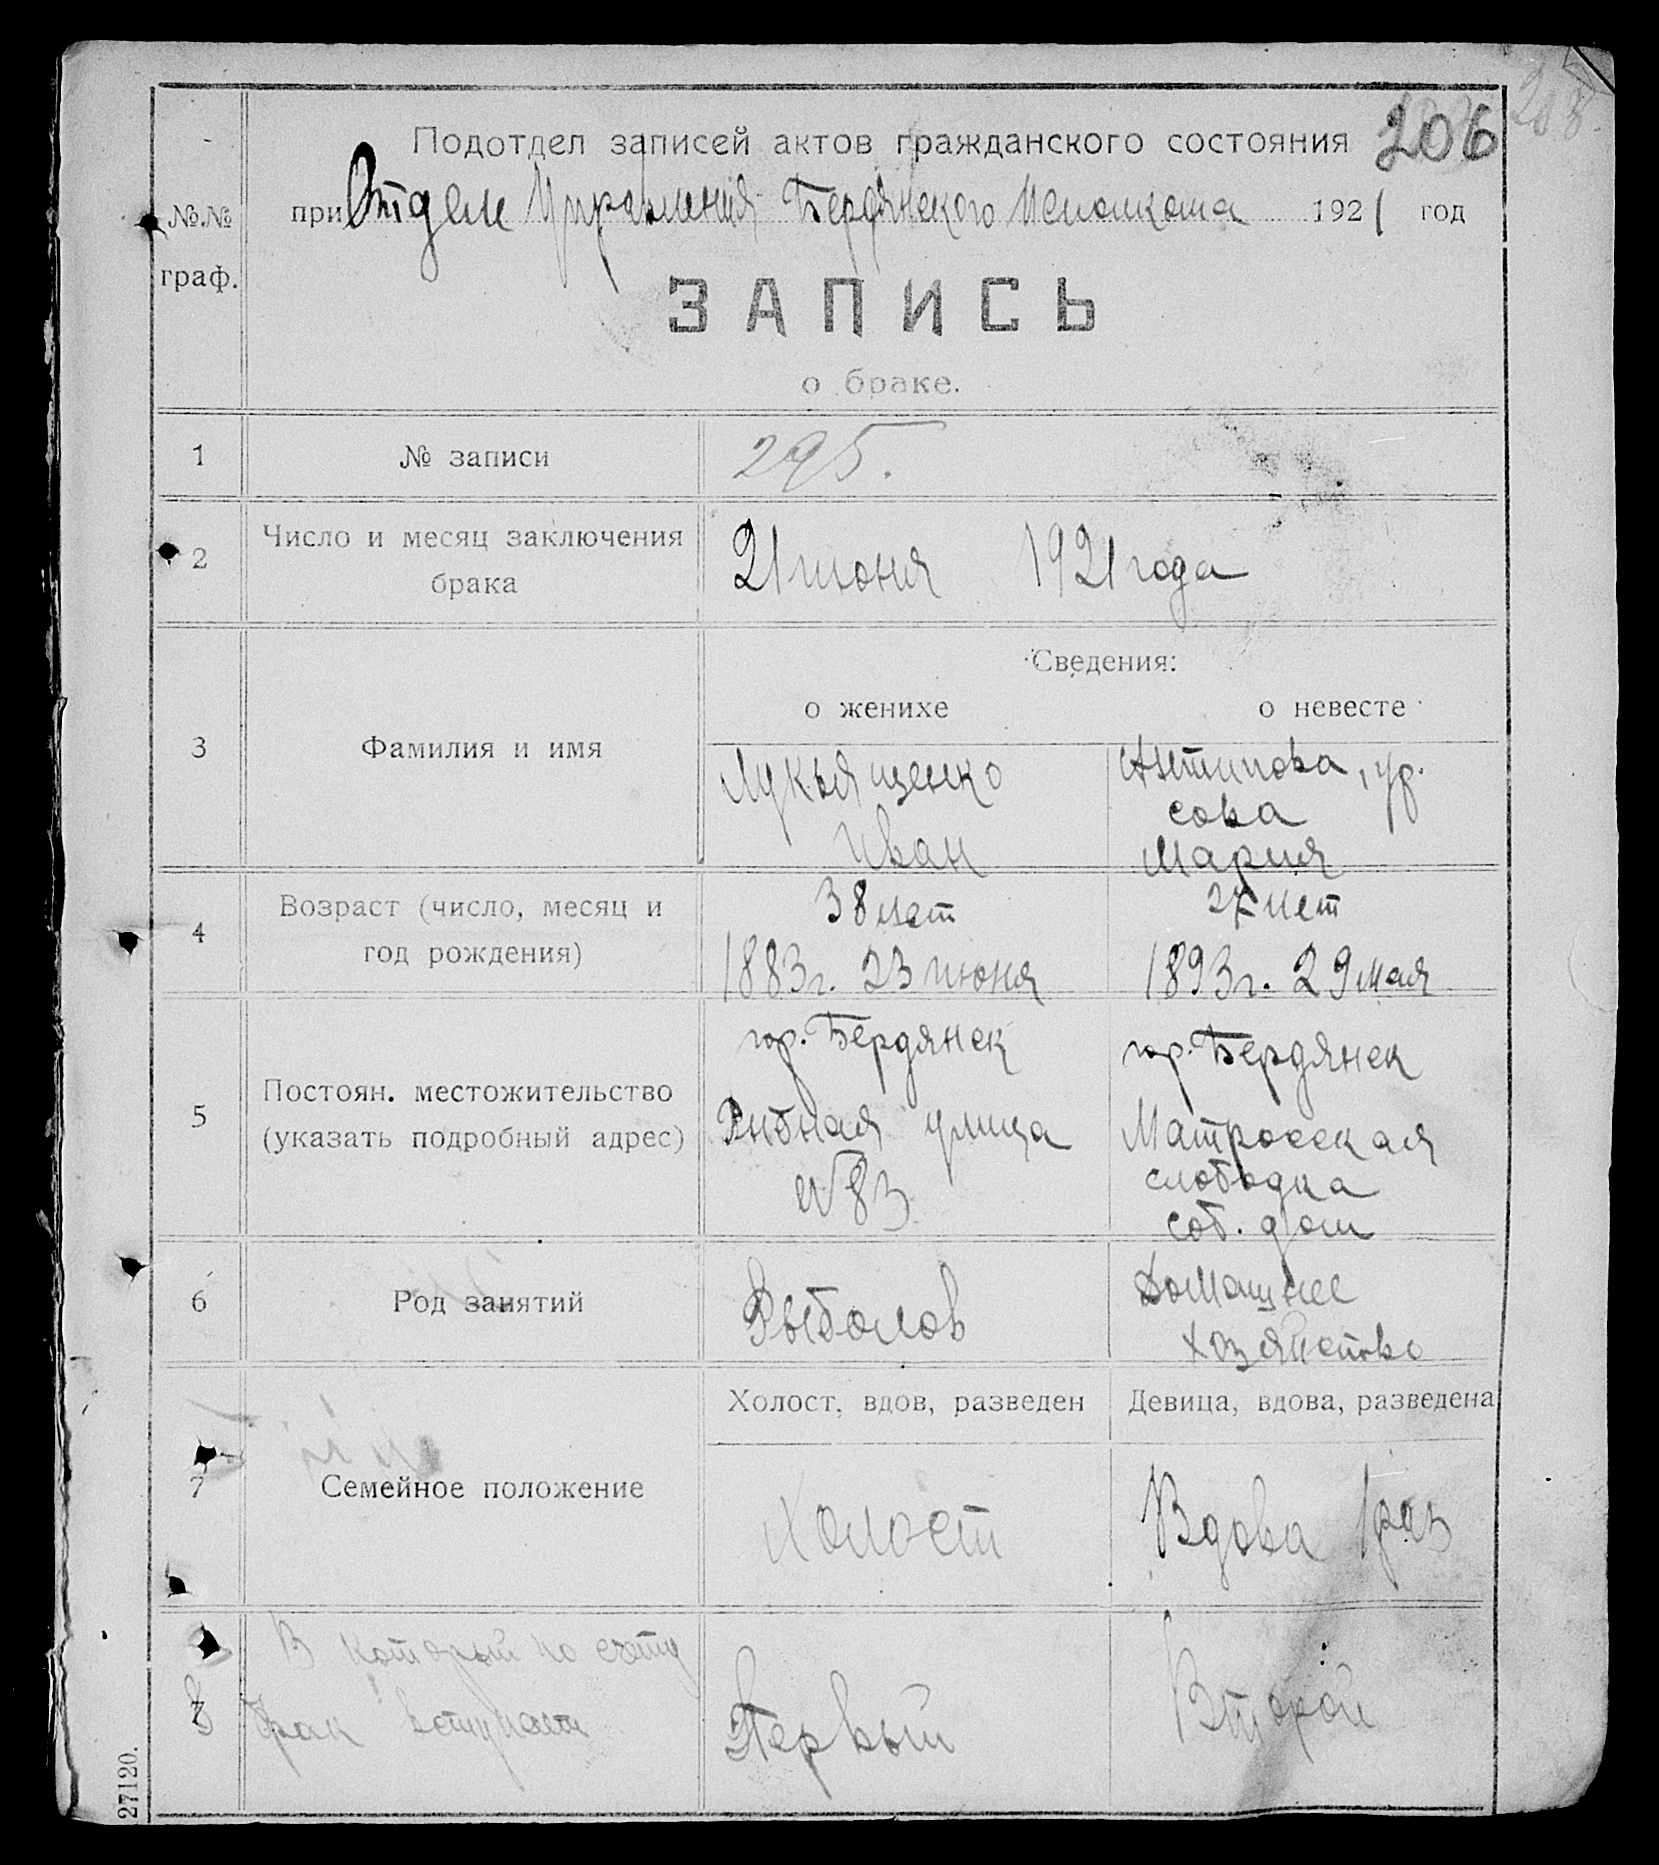 206
Подотдел записей актов гражданского состояния
при Отделе Управления Бердянского Исполкома 1921 год
№№
граф.
ЗАПИСЬ
о браке.
1 № записи 295.
2 Число и месяц заключения
брака
21 июня 1921 года
Сведения:
о женихе о невесте
3 Фамилия и имя
Лукьященко
Иван
Антипова, ур.
Сова
Мария
4 Возраст (число, месяц и
год рождения)
38 лет
1883г. 23 июня
27 лет
1893г. 29 мая
5 Постоян. местожительство
(указать подробный адрес)
гор. Бердянск
Рыбная улица
№83
гор. Бердянск
Матросская
слободка
соб. дом
6 Род занятий
Рыболов
Домашнее
хозяйство
7 Семейное положение
Холост, вдов, разведен
Девица, вдова, разведена
Холост
Вдова 1 раз
8 В который по счету
брак вступает
Первый
Второй
27120.